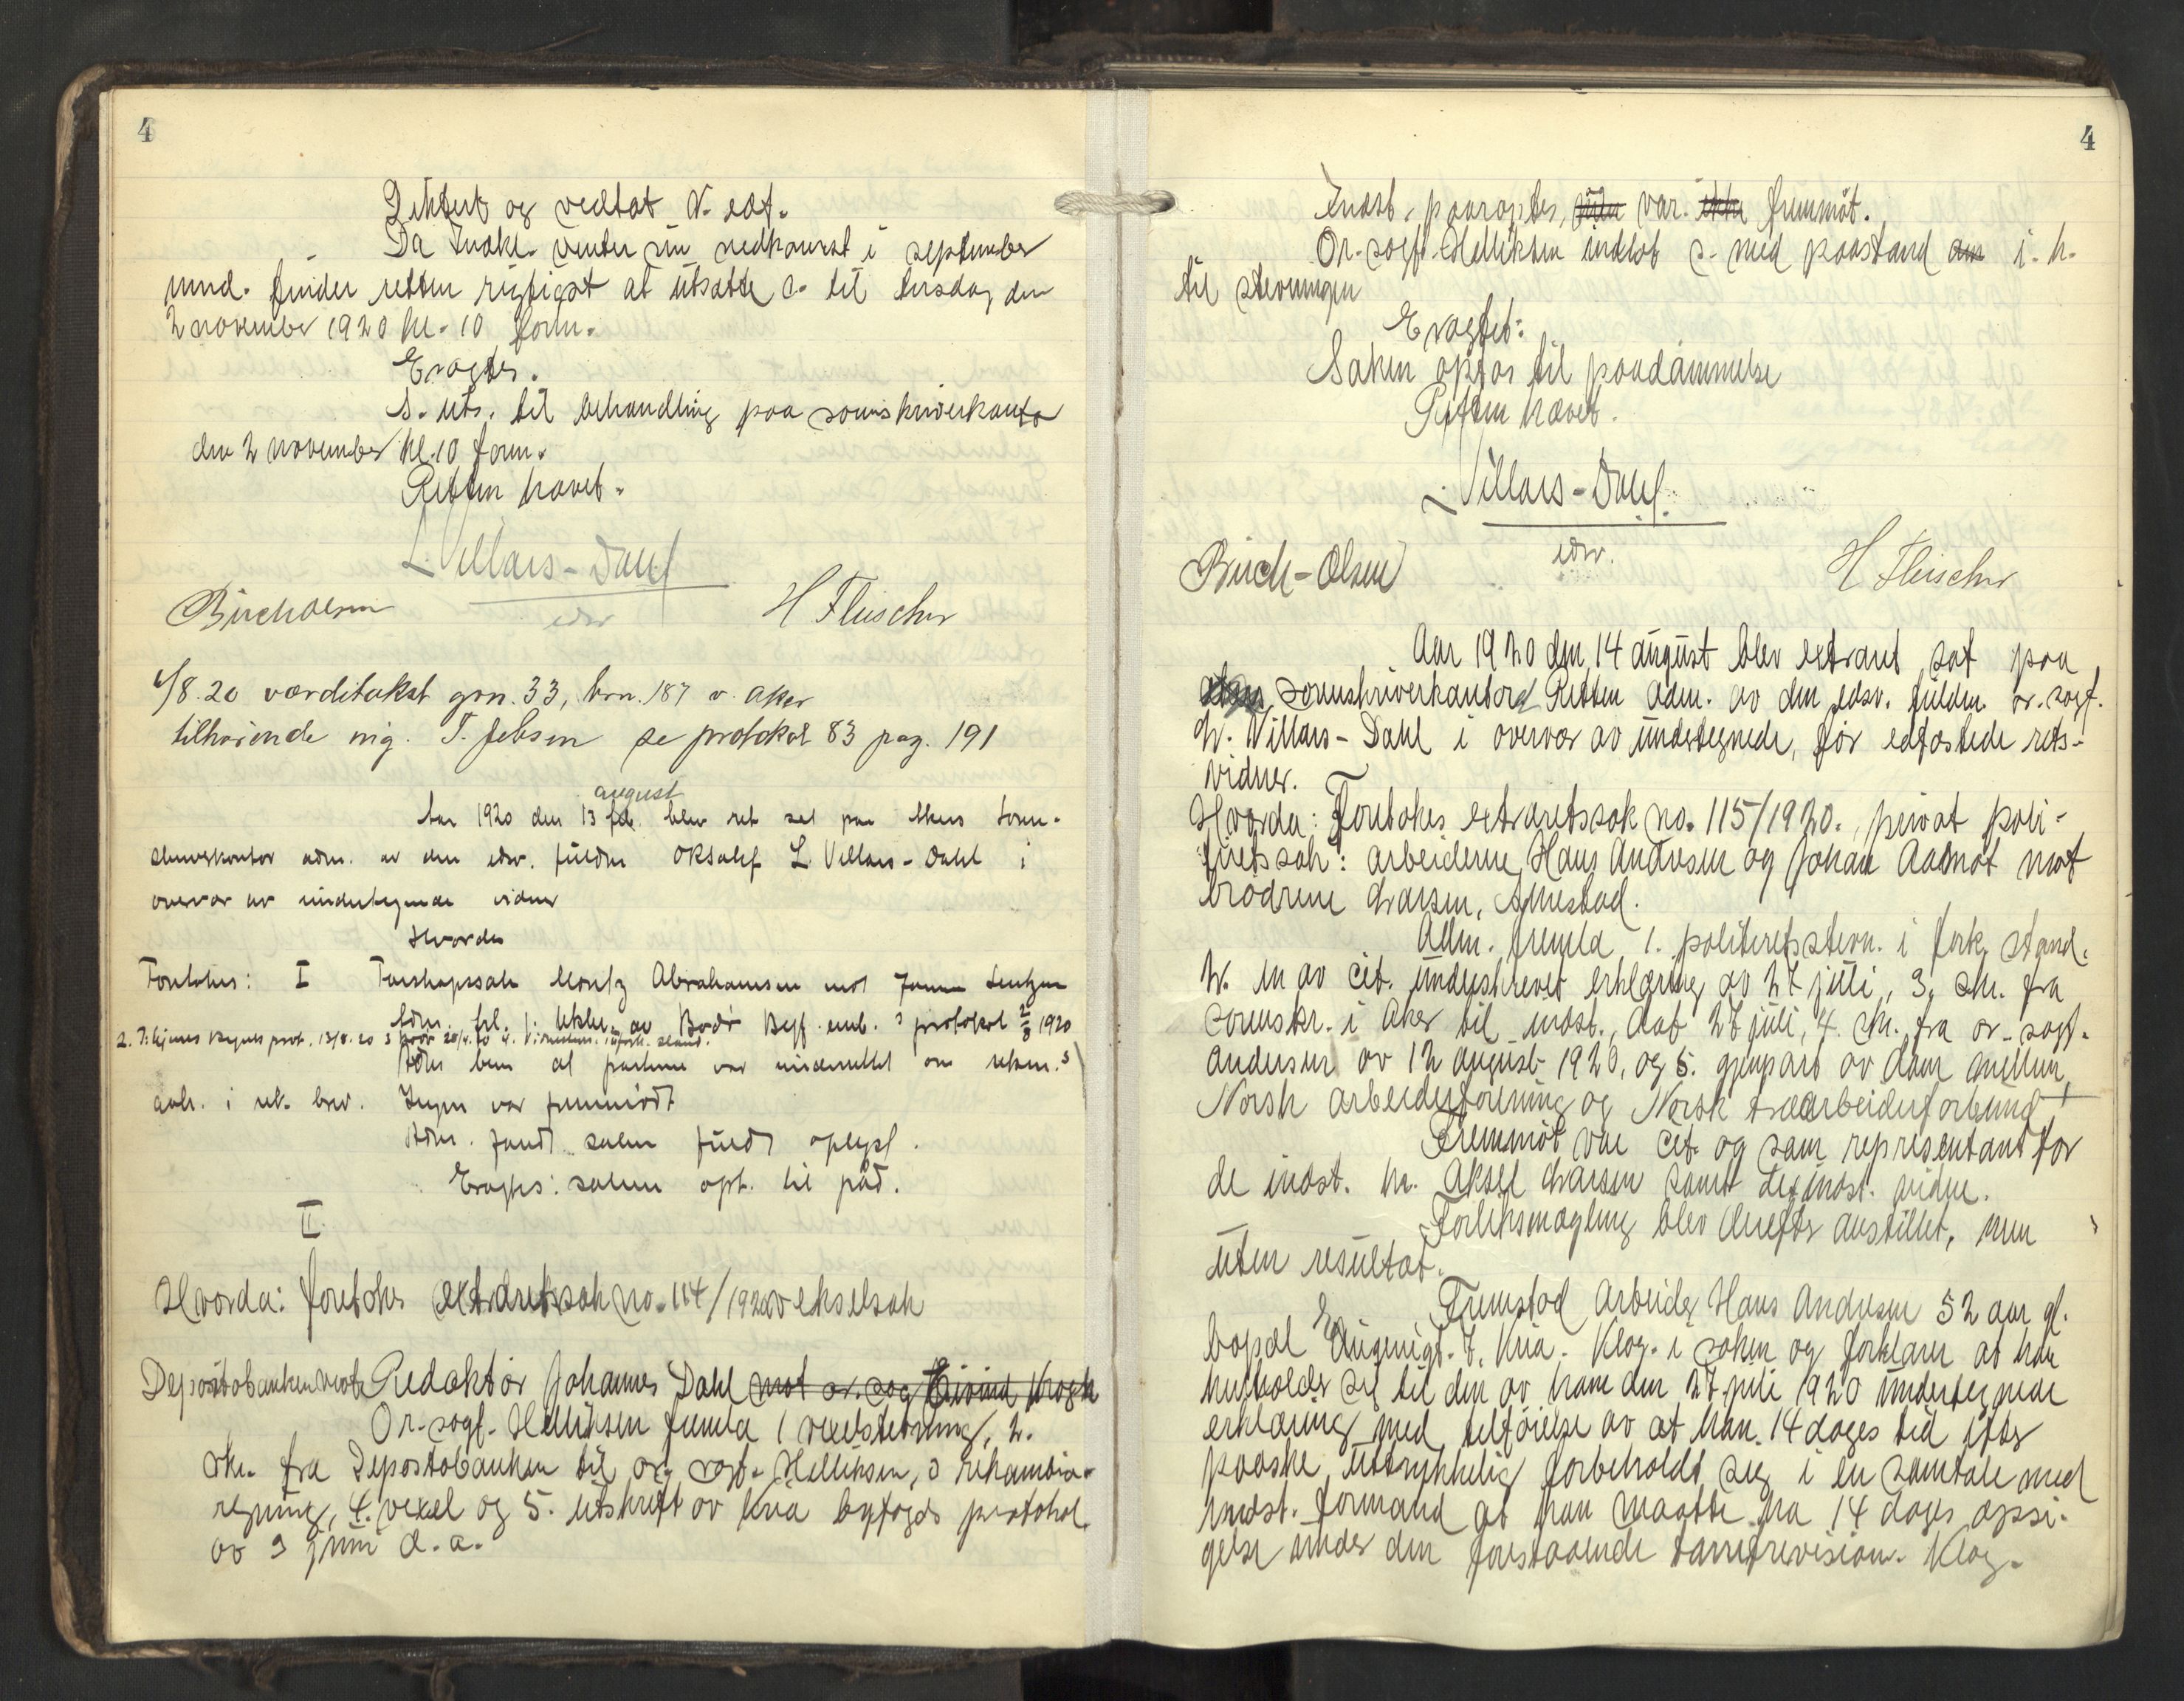 4
Dikteret og vedtat N. edf.
Da Indkl. venter sin nedkomst i september
mnd. finder retten rigtigst at utsætte s. til tirsdag den
2 november 1920 kl. 10 form.
Eragtes.
S. uts. til behandling paa sorenskriverkontor
den 2 november kl. 10 form.
Retten hævet.
L. Villars-Dahl
edsv
Birch Olsen
H Fleischer
6/8.20 værditakst gn. 33, brn. 187 v. Aker
tilhørende ing. T. Jebsen se protokol 83 pag. 191
august
Aar 1920 den 13 feb. blev ret sat paa Akers soren-
skriverkontor adm. av den edsv. fuldm ORSakf L. Villars-Dahl i
overvær av undertegnede vidner
Hvorda
Foretokes: I Farskapssak Moritz Abrahamsen mot
Adm. frl. 1. av Bodø Byf. emb. 3 protokol 2/8 1920
Adm bem at partene var underrettet om
i rek. brev. Ingen var fremmødt
Adm. fandt saken fuldt oplyst.
Eragtes: saken opt. til påd.
II
Hvorda: foretokes extraretssak no. 114/1920 vekselsak
Depositobanken mot Redaktør Johannes Dahl mot or. sag Eivind Krogh
Or-sagf. Helliksen fremla 1 vexelstevning, 2.
skr. fra Depositobanken til or sagf. Helliksen, 3 rekambio-
regning, 4. vexel og 5. utskrift av Kria byfogds protokol
av 9 juni d. a.
4
Indst. paaroptes, var ikke fremmøt.
Or-sagf. Helliksen indlot s. med paastand i. h.
til stevningen
Eragtet:
Saken optas til paadømmelse
Retten hævet.
L. Villars-Dahl
edsv.
Birch-Olsen
H Fleischer
Aar 1920 den 14 august blev extraret sat paa
Akers sorenskriverkontor Retten adm. av den edsv. fuldm. or. sagf.
L. Villars-Dahl i overvær av undertegnede, før edfæstede rets-
vidner.
Hvorda: Foretokes extraretssak no. 115/1920., privat poli-
tiretssak: arbeiderne Hans Andresen og Johan Aamot mot
brødrene Larsen,
Adm. fremla 1. politiretsstevn. i fork. stand.
2. en av cit. underskrevet erklæring av 27 juli, 3, skr. fra
sorenskr. i Aker til indst., dat 27 juli, 4. skr. fra or-sagf.
Andersen av 12 august 1920, og 5. gjenpart av dom mellem
Norsk arbeiderforening og Norsk træarbeiderforbund
Fremmøt var cit. og som representant for
de indst. hr. Aksel Larsen samt de indst. vidne.
Forliksmægling blev derefter anstillet, men
uten resultat.
Fremstod Arbeider Hans Andresen 52 aar gl.
bopæl Eugenigt. 7, Kria. Klag. i saken og forklarer at han
henholder sig til den av ham den 27 juli 1920 undertegnede
erklæring med tilføielse av at han 14 dages tid efter
paaske uttrykkelig forbeholdt sig i en samtale med
indst. formand at han maatte ha 14 dages opsi-
gelse under den forestaaende tarifrevision. Klag.